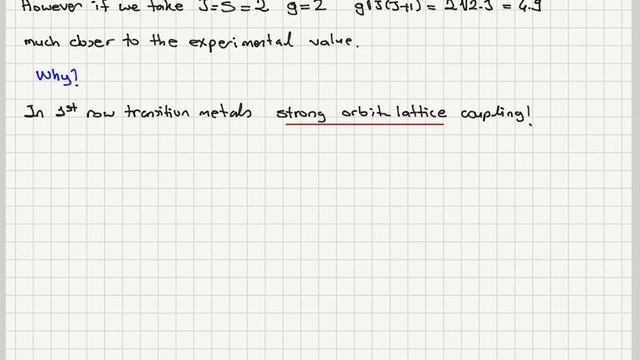 However if we take J=S=2 g=2 g√J(J+1) = 2√2.3 = 4.9
much closer to the experimental value.
Why?
In 1st row transition metals strong orbit lattice coupling!